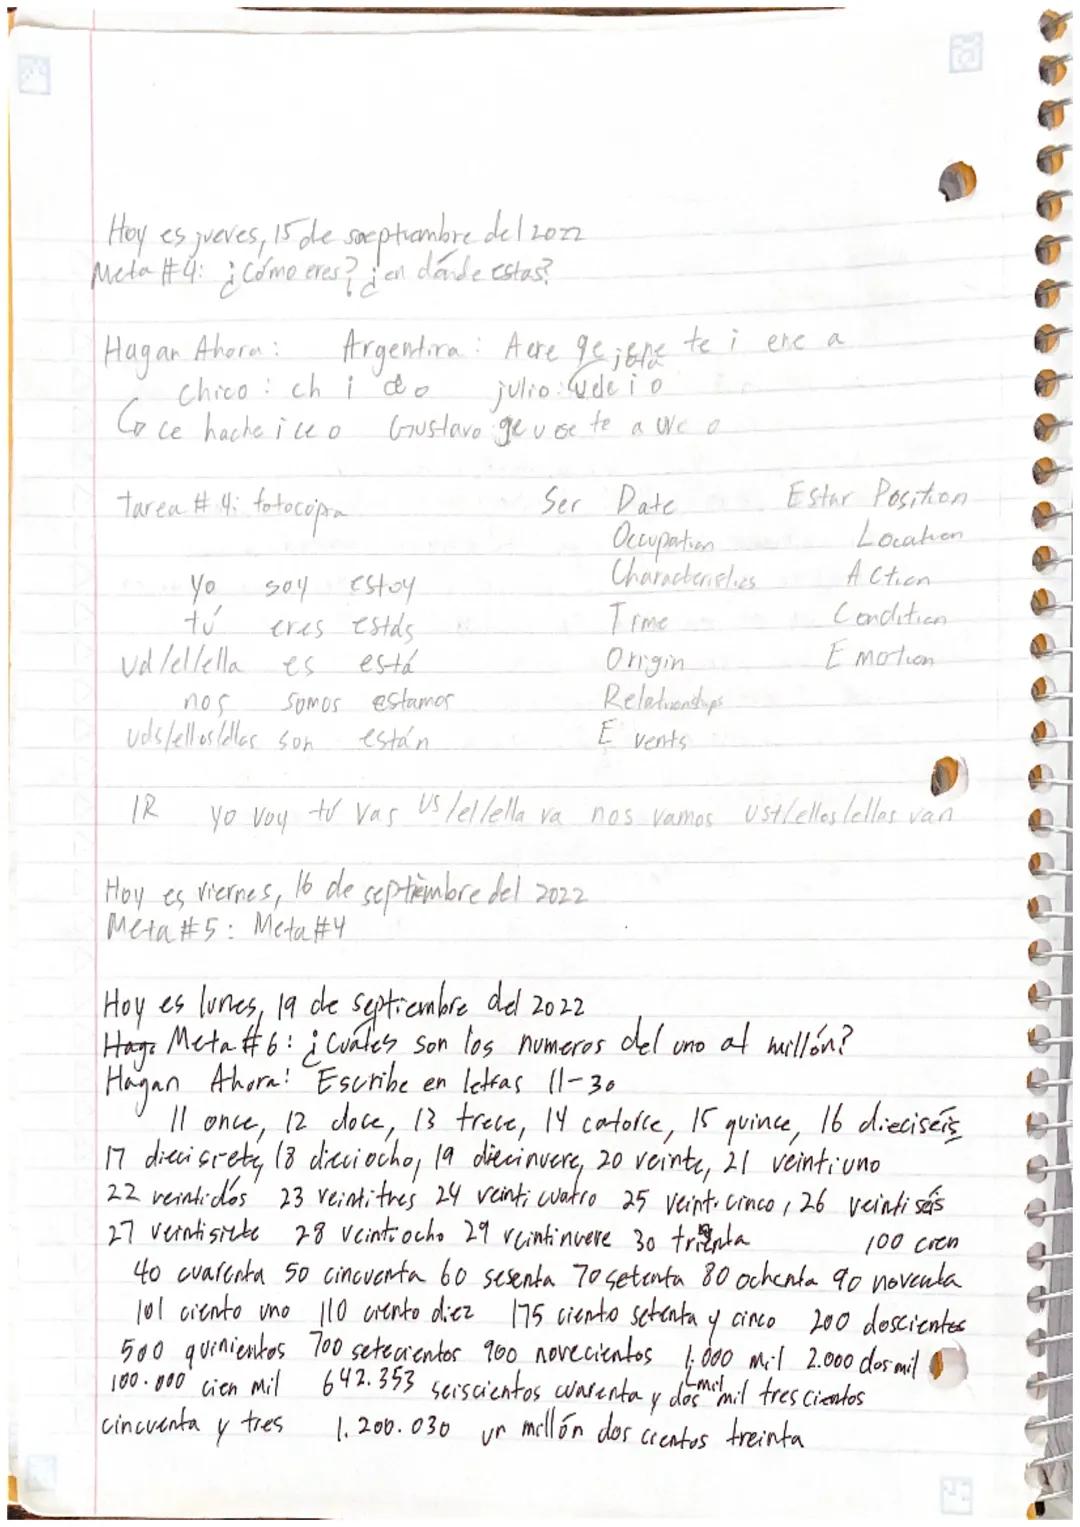 Hoy es jueves, 15 de saeptiambre del 2022
Meta #4: ¿Cómo eres? ¿en dónde estas?
Hagan Ahora: Argentina: Acre ge jene te i ene a
chico: ch i do julio: Ude i o
ce hache i ce o Gustavo ge u se te a uve o
tarea #4: fotocopia Ser Date Estar Position
Occupation Location
yo soy estoy Characteristics Action
tú eres estás Time Condition
ud/el/ella es está Origin Emotion
nos somos estamos Relationships
uds/ellos/ellas son están Events
IR yo voy tú vas us/el/ella va nos vamos ust/ellos/ellas van
Hoy es viernes, 16 de septiembre del 2022
Meta #5: Meta #4
Hoy es lunes, 19 de septiembre del 2022
Haga Meta #6: ¿Cuáles son los numeros del uno al millón?
Hagan Ahora: Escribe en letras 11-30
11 once, 12 doce, 13 trece, 14 catorce, 15 quince, 16 dieciséis
17 diecisiete, 18 dieciocho, 19 diecinueve, 20 veinte, 21 veintiuno
22 veintidós 23 veintitres 24 veinticuatro 25 veinticinco, 26 veintiséis
27 veintisiete 28 veintiocho 29 veintinueve 30 trienta 100 cien
40 cuarenta 50 cincuenta 60 sesenta 70 setenta 80 ochenta 90 noventa
101 ciento uno 110 ciento diez 175 ciento setenta y cinco 200 doscientos
500 quinientos 700 setecientos 900 novecientos 1.000 mil 2.000 dos mil
100.000 cien mil 642.353 seiscientos cuarenta y dos mil mil tres cientos
cincuenta y tres 1.200.030 un millón dos cientos treinta